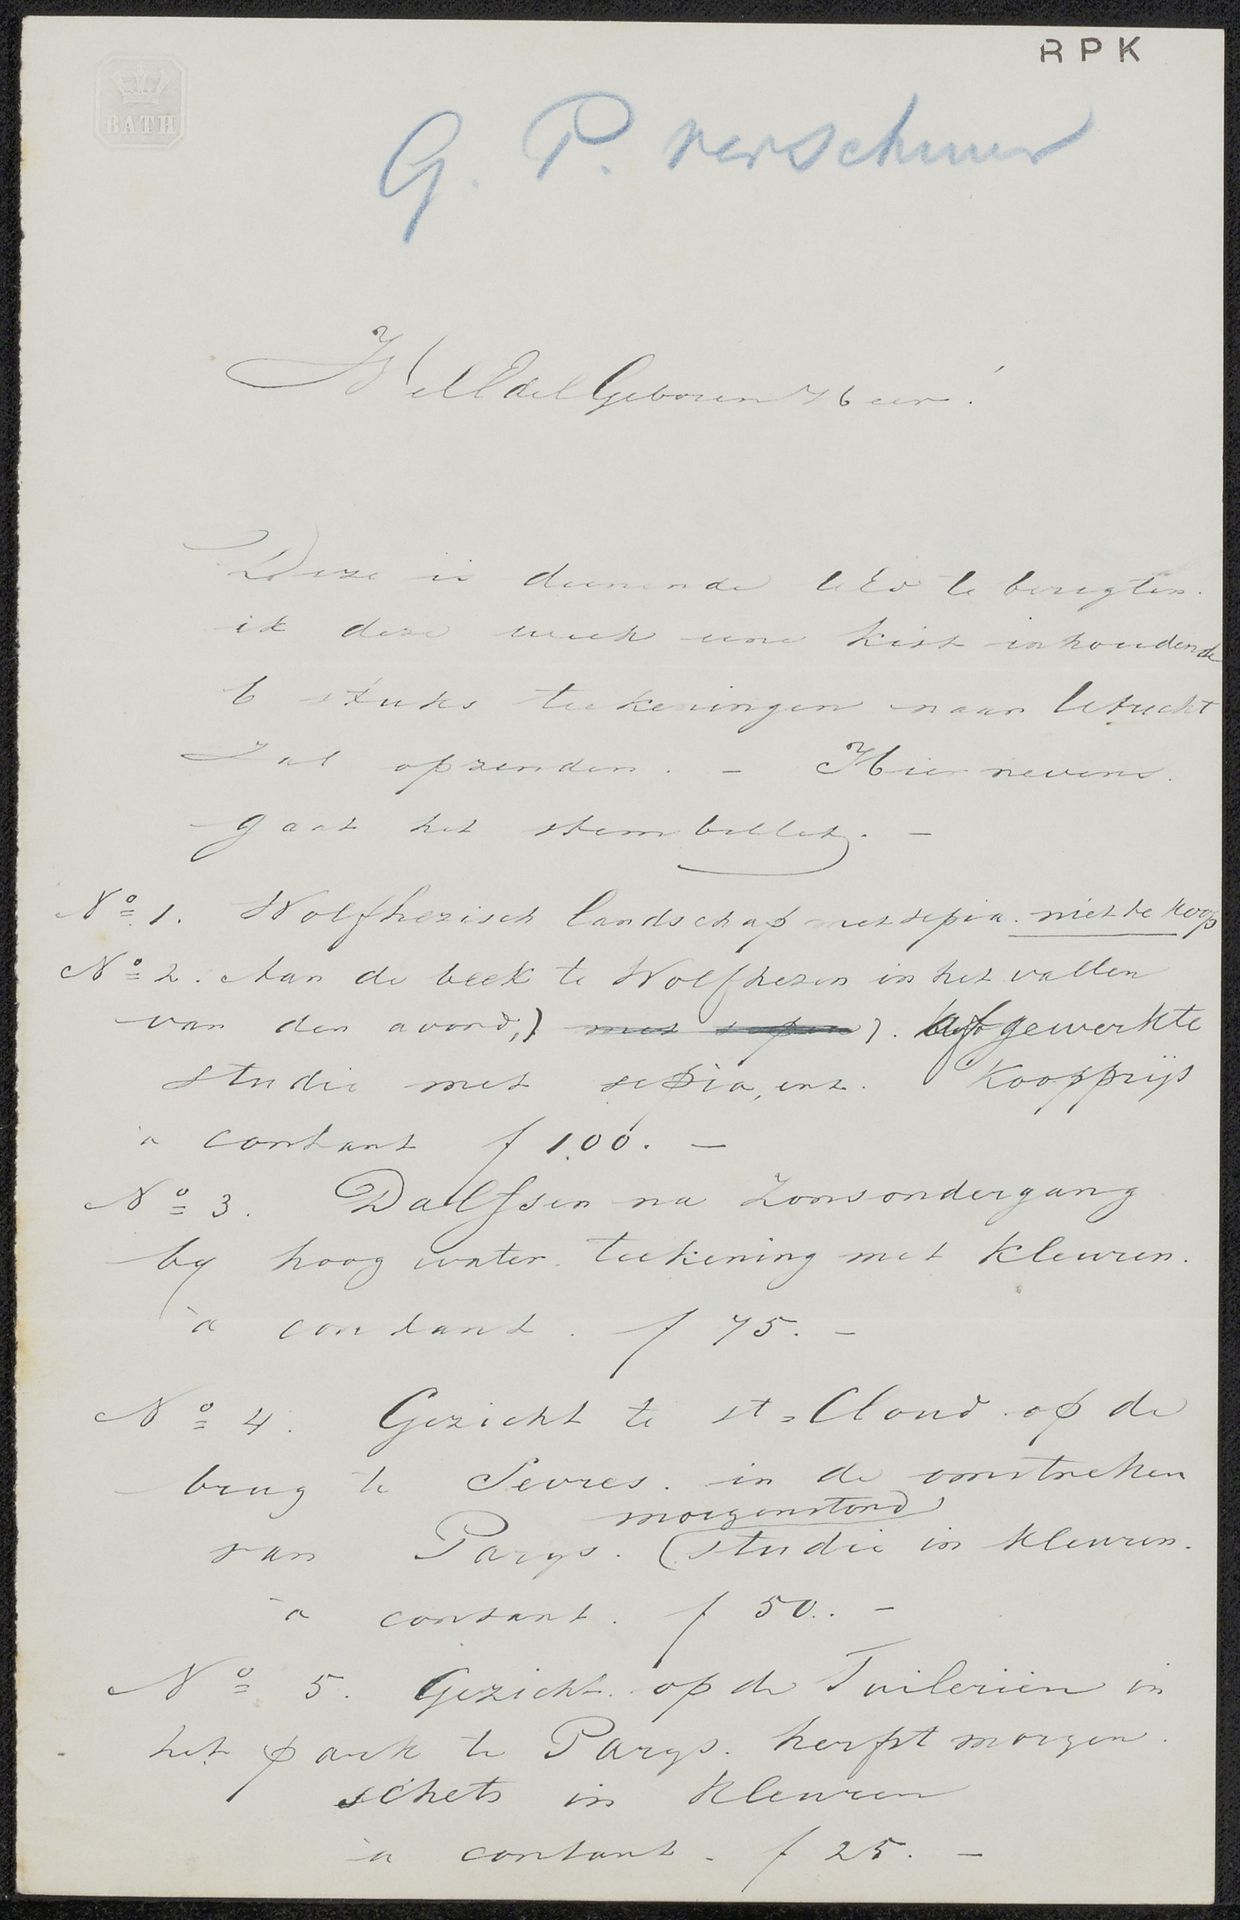 RPK
BATH
G. P. verschuur
WelEdelGeboren Heer!
Deze is dienende UEd te berigten.
ik deze week eene kist inhoudende
6 stuks teekeningen naar Utrecht
zal opzenden. - Hier nevens.
gaat het stembillet. -
No 1. Wolfhezisch landschap met sepia. niet te koop
No 2. Aan de beek te Wolfhezen in het vallen
van den avond,) met sepia). afgewerkte
studie met sepia, enz. Koopprijs
a contant f 100. -
No 3. Dalfsen na zonsondergang
by hoog water. teekening met kleuren.
à contant. f 75. -
No 4. Gezicht te st=Cloud op de
brug te Sevres. in de omstreken
morgenstond
van Parys. (studie in kleuren.
a contant. f 50. -
No 5. Gezicht op de Tuileriën in
het park te Parys. herfst morgen.
schets in kleuren
a contant. f 25. -